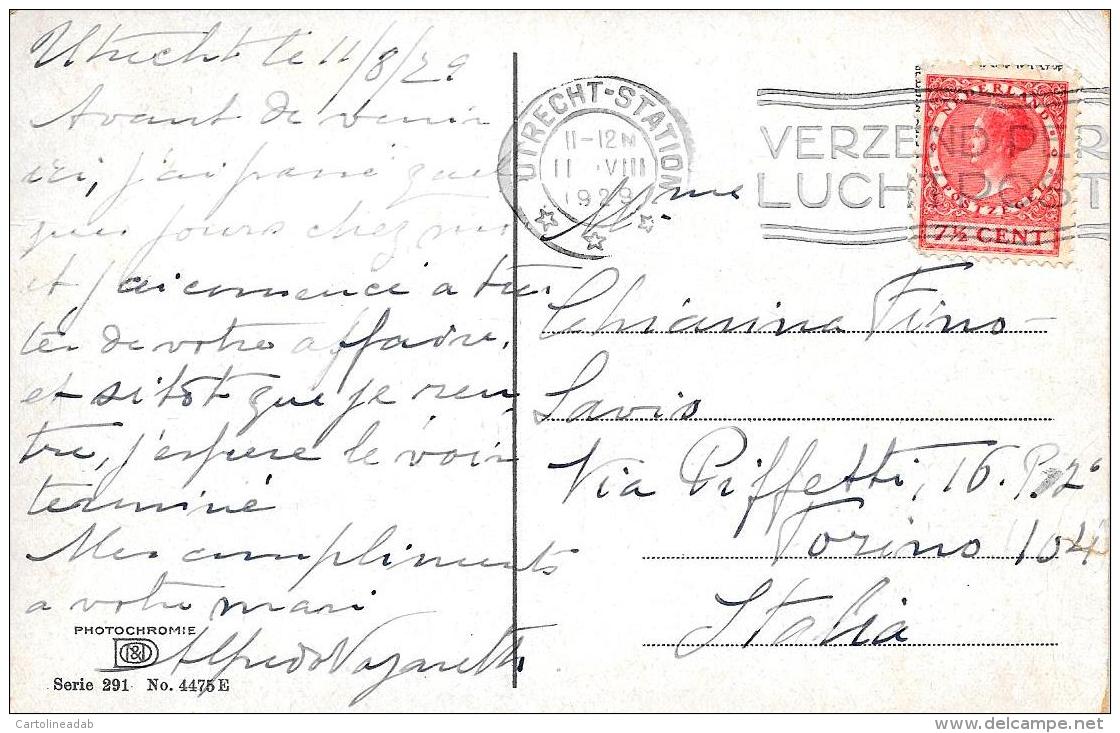 Utrecht le 11/8/29
Avant de venir
ici, j'ai passé quel
ques jours chez moi
et j'ai comencé a trai
ter de votre affaire,
et sitôt que je ren
tre, j'espere le voir
terminé
Mes compliments
a votre mari
Alfredo
PHOTOCHROMIE
D&D
Serie 291 No. 4475E
UTRECHT-STATION
11-12N
11 VIII
1929
VERZEND PER
LUCHTPOST
NEDERLAND
POSTZEGEL
7½ CENT
Mme
Chiarina Fino-
Savio
Via Piffetti, 16. P. 2°
Torino 104
Italia
Cartolineadab
www.delcampe.net